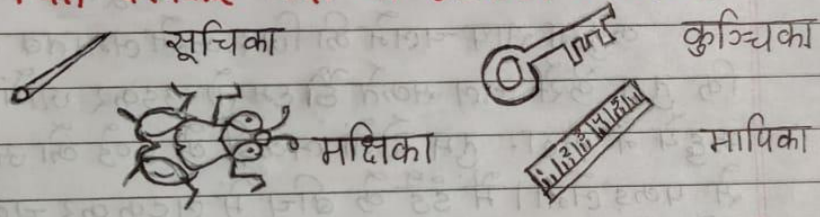 सूचिका
कुञ्चिका
मक्षिका
मापिका